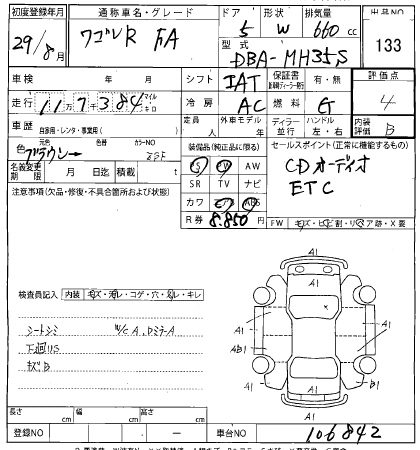 初度登録年月 通称車名・グレード ドア 形状 排気量 出品NO
29/8月 ワゴンR FA 5 W 660cc 133
型式 DBA-MH35S
車検 年 月 シフト IAT 保証書 有・無 評価点
走行 11万7千384 マイル キロ 冷房 AC 燃料 G 4
車歴 自家用・レンタ・事業用( ) 定員 人 外車モデル 年 ディーラー 並行 ハンドル 左・右 内装評価 B
元色 色替 カラーNO 装備品(純正品に限る) セールスポイント(正常に機能するもの)
ブラウン→ ZSF S PW AW CDオーディオ
名義変更期限 月 日迄 積載 t SR TV ナビ ETC
注意事項(欠品・修復・不具合箇所および状態) カワ エアB ABS
R券 8.850円 FW キズ・ヒビ割・リペア跡・X要
A1
検査員記入 内装 キズ・汚レ・コゲ・穴・ムレ・キレ A1 A1
シートシミ W/C A、Dミラ-A A1 A1
下廻りS AB1 A1
キズB B1
長さ cm 幅 cm 高さ cm A1
登録NO ― 車台NO 106842